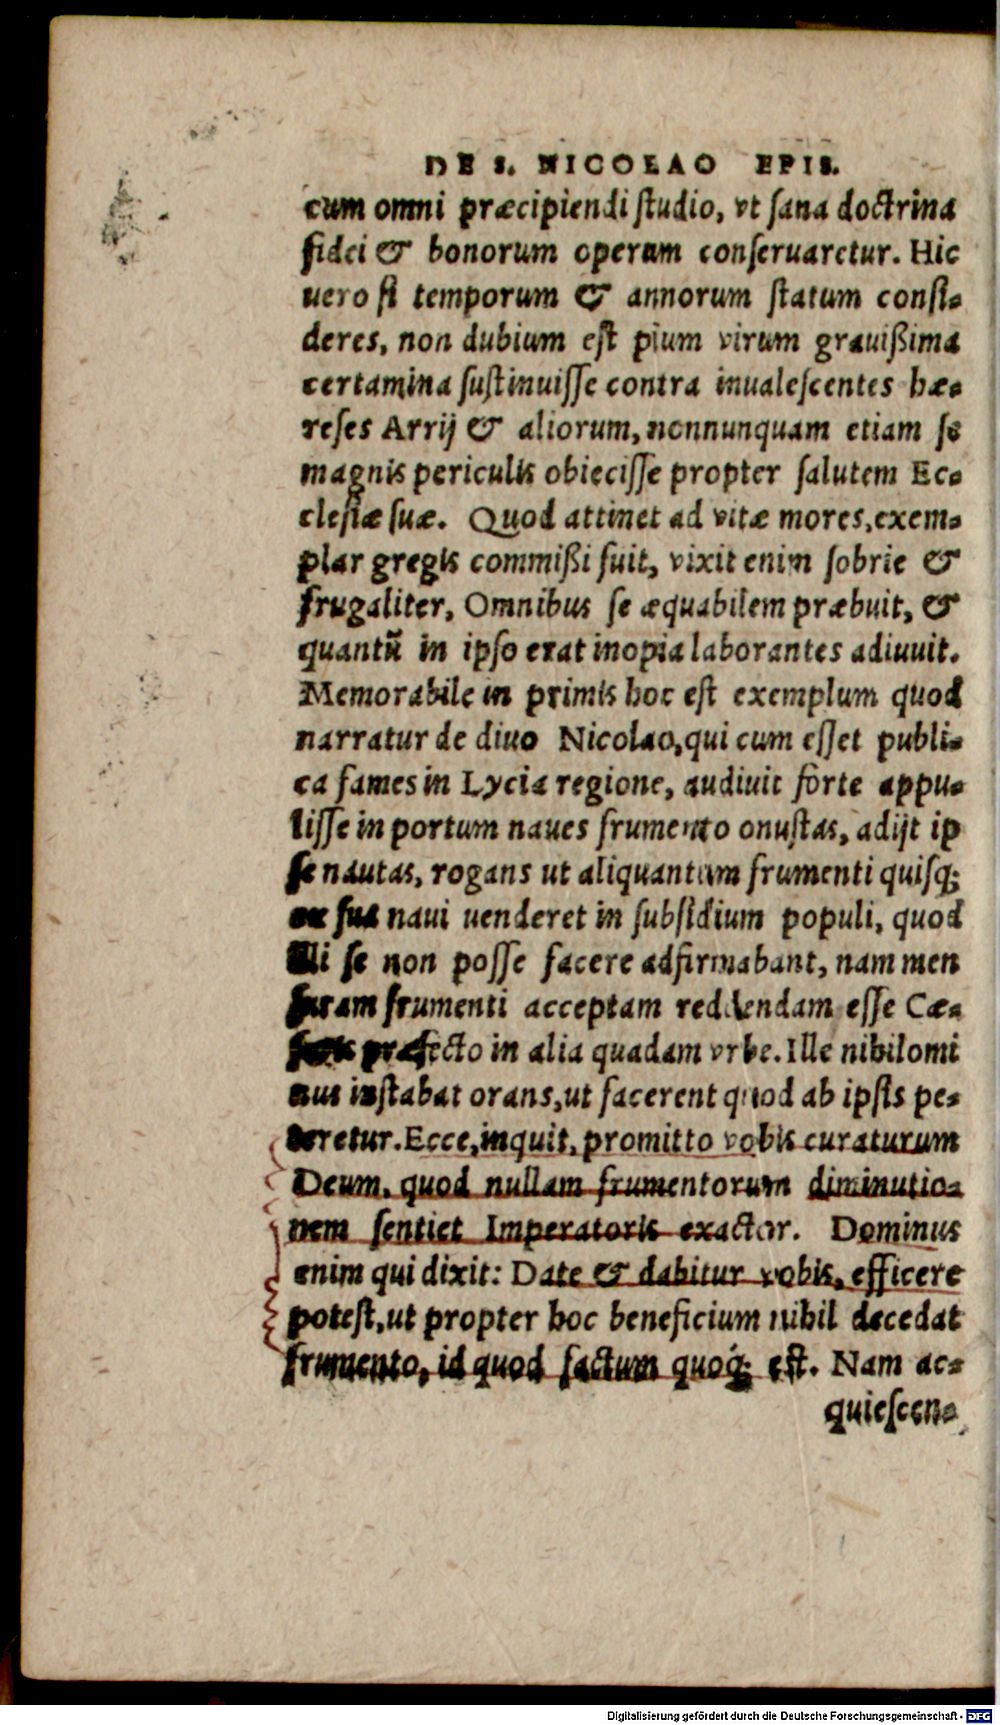 DE S. NICOLAO EPIS.
cum omni præcipiendi ſtudio, vt ſana doctrina
fidei & bonorum operum conſeruaretur. Hic
uero ſi temporum & annorum ſtatum conſi-
deres, non dubium eſt pium virum grauißima
certamina ſuſtinuiſſe contra inualeſcentes hæ-
reſes Arrij & aliorum, nonnunquam etiam ſe
magnis periculis obieciſſe propter ſalutem Ec-
cleſiæ ſuæ. Quod attinet ad vitæ mores, exem-
plar gregis commißi fuit, vixit enim ſobrie &
frugaliter, Omnibus ſe æquabilem præbuit, &
quantũ in ipſo erat inopia laborantes adiuuit.
Memorabile in primis hoc eſt exemplum quod
narratur de diuo Nicolao, qui cum eſſet publi-
ca fames in Lycia regione, audiuit forte appu-
liſſe in portum naues frumento onuſtas, adijt ip
ſe nautas, rogans ut aliquantum frumenti quiſq;
ex ſua naui uenderet in ſubſidium populi, quod
illi ſe non poſſe facere adfirmabant, nam men
ſuram frumenti acceptam reddendam eſſe Cæ-
ſaris præfecto in alia quadam vrbe. Ille nihilomi
nus inſtabat orans, ut facerent quod ab ipſis pe-
teretur. Ecce, inquit, promitto vobis curaturum
Deum, quod nullam frumentorum diminutio-
nem ſentiet Imperatoris exactor. Dominus
enim qui dixit: Date & dabitur vobis, efficere
poteſt, ut propter hoc beneficium nihil decedat
frumento, id quod factum quoq́; eſt. Nam ac-
quieſcen-
Digitalisierung gefördert durch die Deutsche Forschungsgemeinschaft - DFG